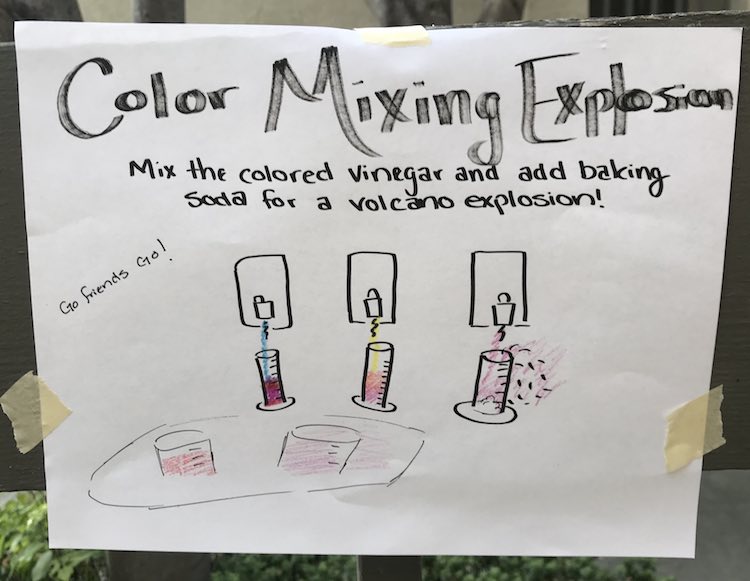 Color Mixing Explosion
Mix the colored vinegar and add baking
soda for a volcano explosion!
Go friends Go!